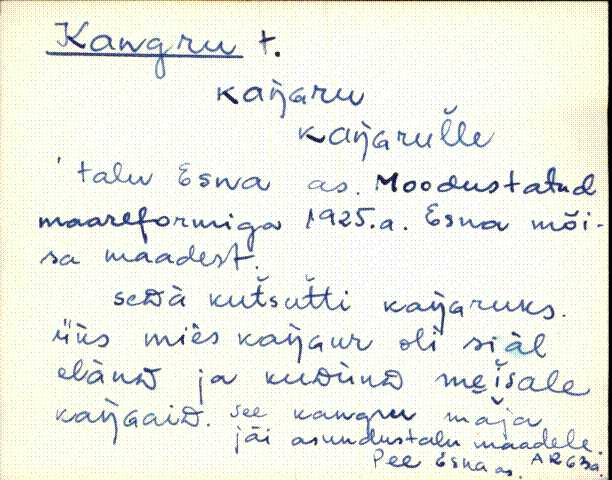 Kangru t.
kaŋGru
kaŋGruĬle
talu Esna as. Moodustatud
maareformiga 1925.a. Esna mõi-
sa maadest.
seDà kut̆sut̆ti kaŋGruks.
üks miès kaŋGur oli siàl
elänD ja kuDunD mei̮šale
kaŋGaiD. see kangru maja
jäi asundustalu maadele.
Pee Esna as.